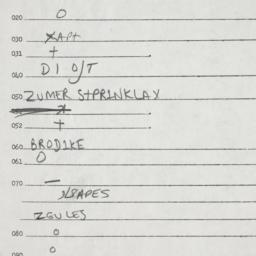 020 O
XAPT
030
031 +
DI O/T
040
050 ZUMER STPRINKLAX
052 +
060 BRODIKE
061 O
070 —
APES
ZGULES
080 O
090 O